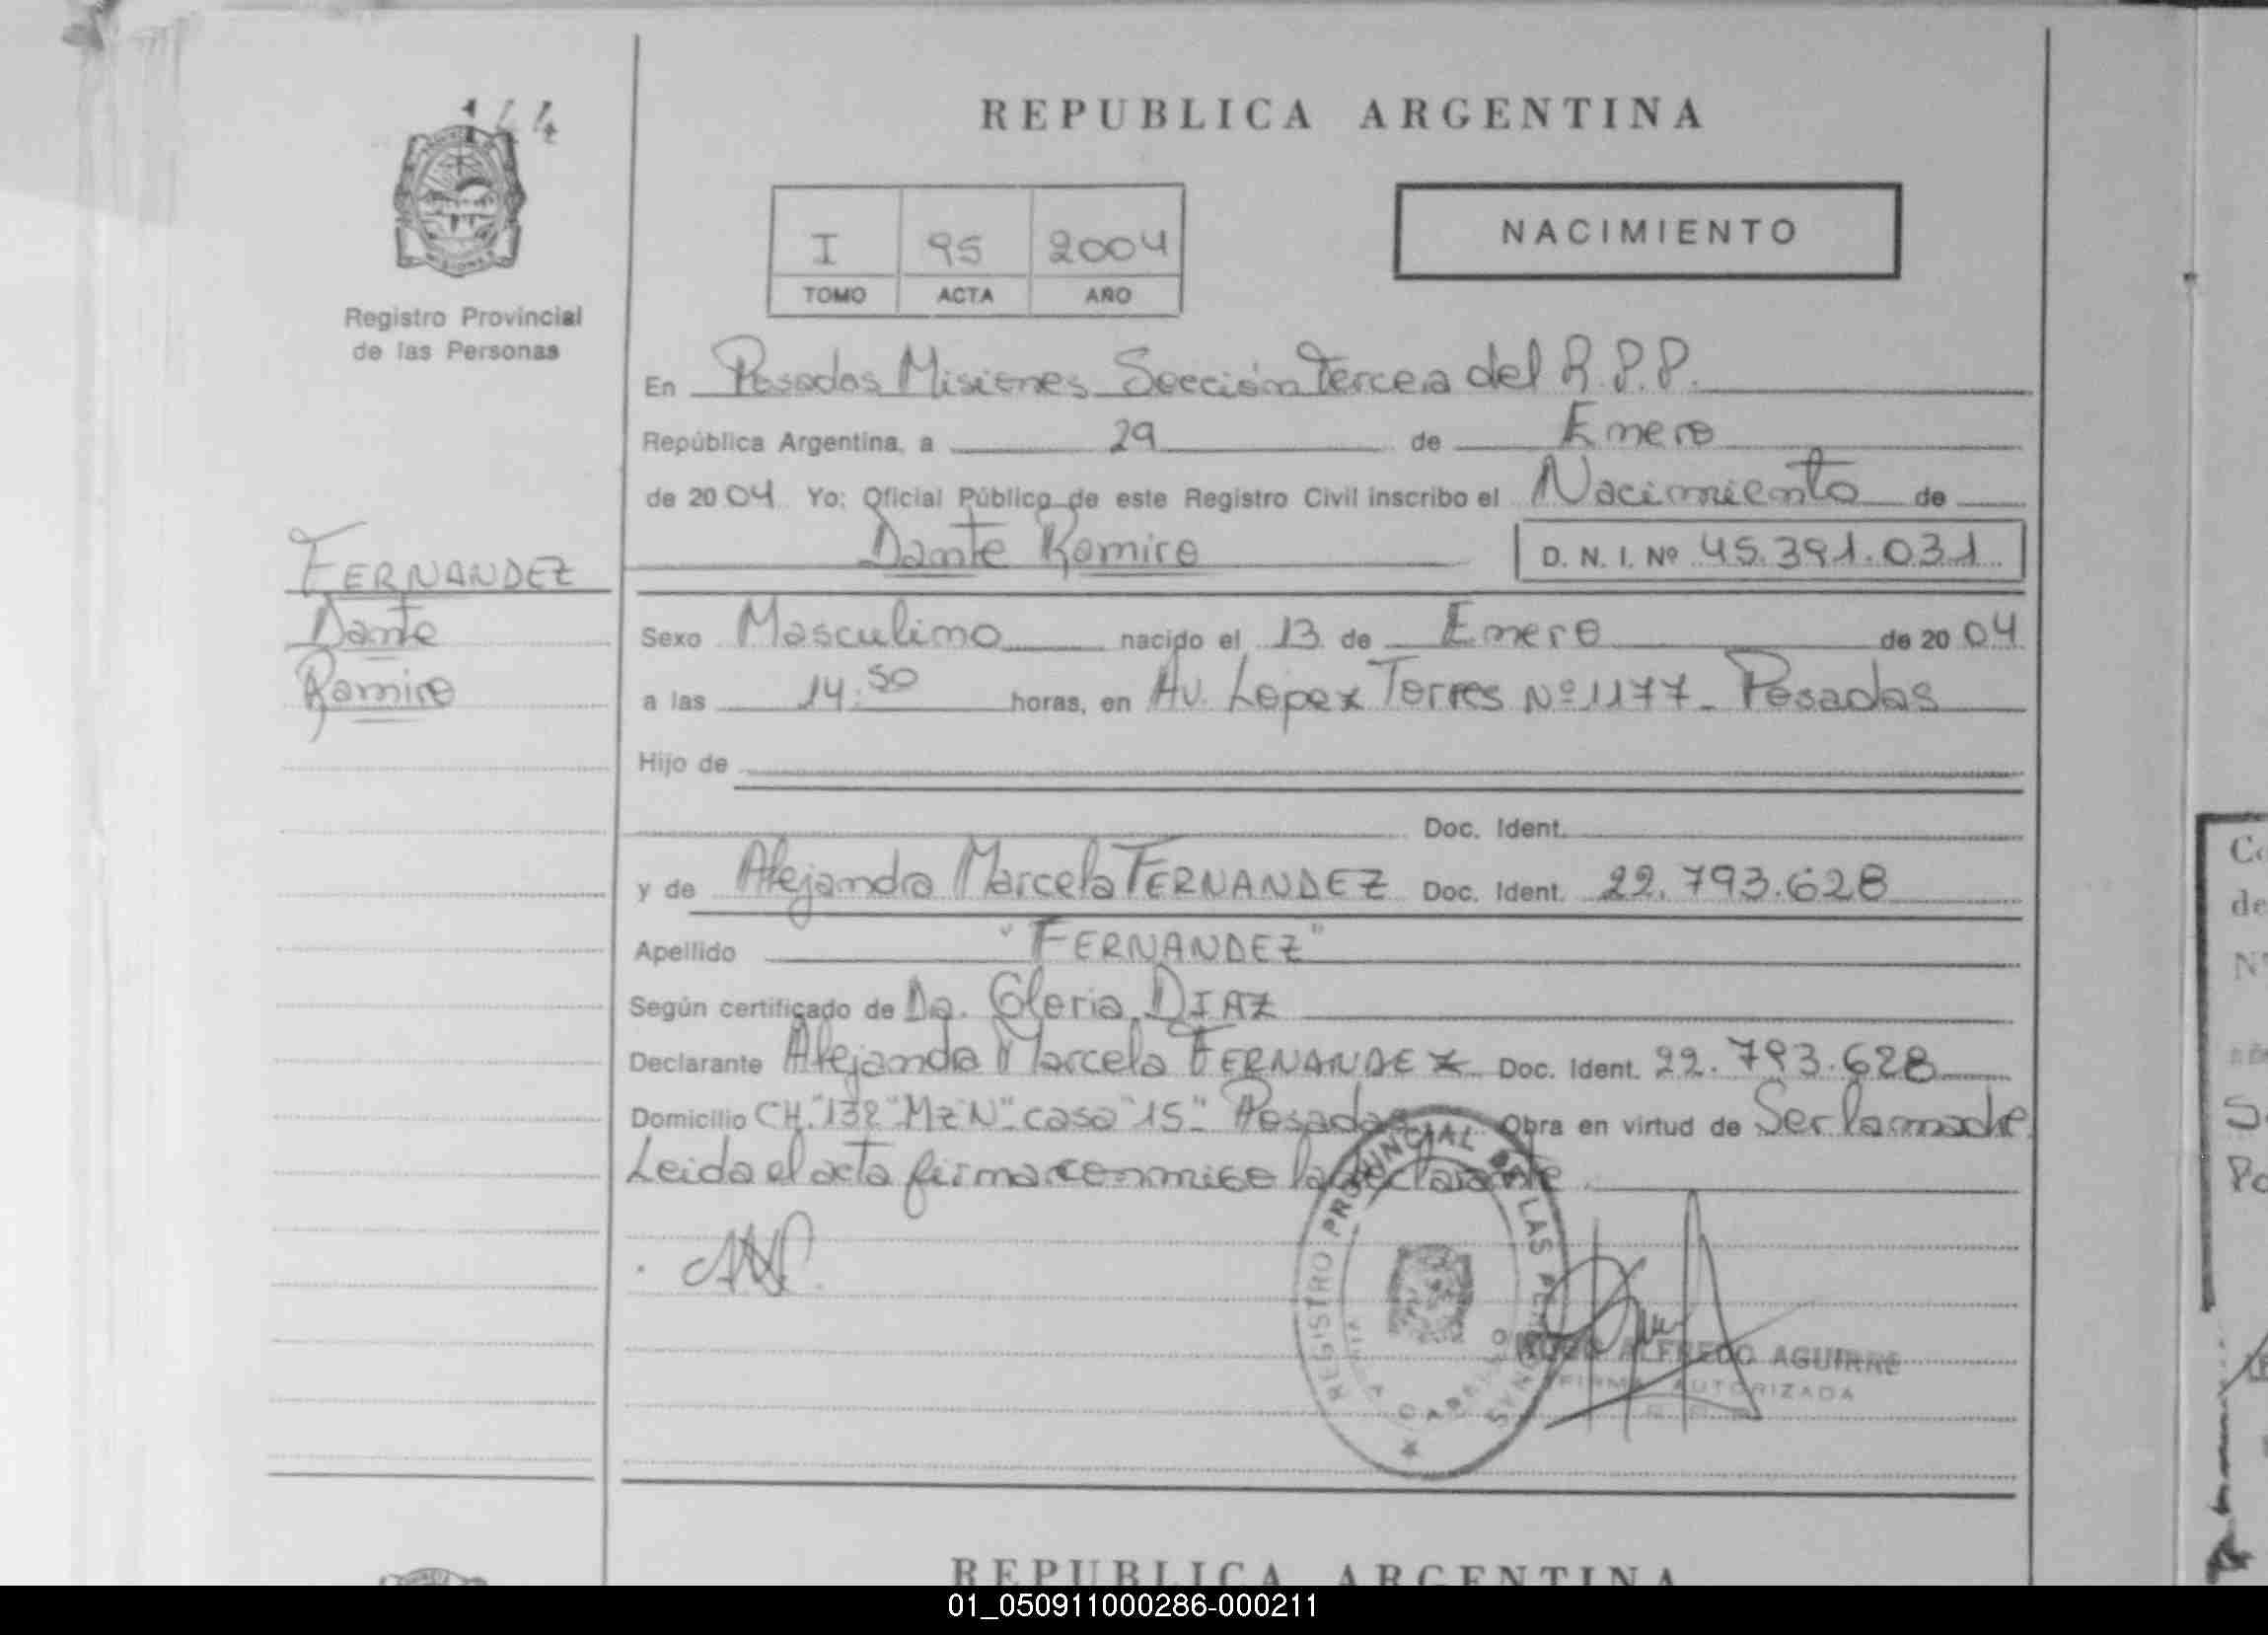 144
REPUBLICA ARGENTINA
I 95 2004
TOMO ACTA AÑO
NACIMIENTO
Registro Provincial
de las Personas
En Posadas Misiones Sección Tercera del R.P.P.
República Argentina, a 29 de Enero
de 2004 Yo: Oficial Público de este Registro Civil inscribo el Nacimiento de
Dante Ramiro D. N. I. Nº 45.391.031
FERNANDEZ
Dante
Ramiro
Sexo Masculino nacido el 13 de Enero de 2004
a las 14.50 horas, en Av. Lopez Torres Nº 1177 - Posadas
Hijo de
Doc. Ident.
y de Alejandra Marcela FERNANDEZ Doc. Ident. 22.793.628
Apellido "FERNANDEZ"
Según certificado de Da. Gloria DIAZ
Declarante Alejandra Marcela FERNANDEZ Doc. Ident. 22.793.628
Domicilio CH."132" Mz"N"- casa "15"- Posadas Obra en virtud de Ser la madre
Leida el acta firma conmigo la declarante
REGISTRO PROVINCIAL DE LAS PERSONAS
ALFREDO AGUIRRE
FIRMA AUTORIZADA
REPUBLICA ARGENTINA
01_050911000286-000211